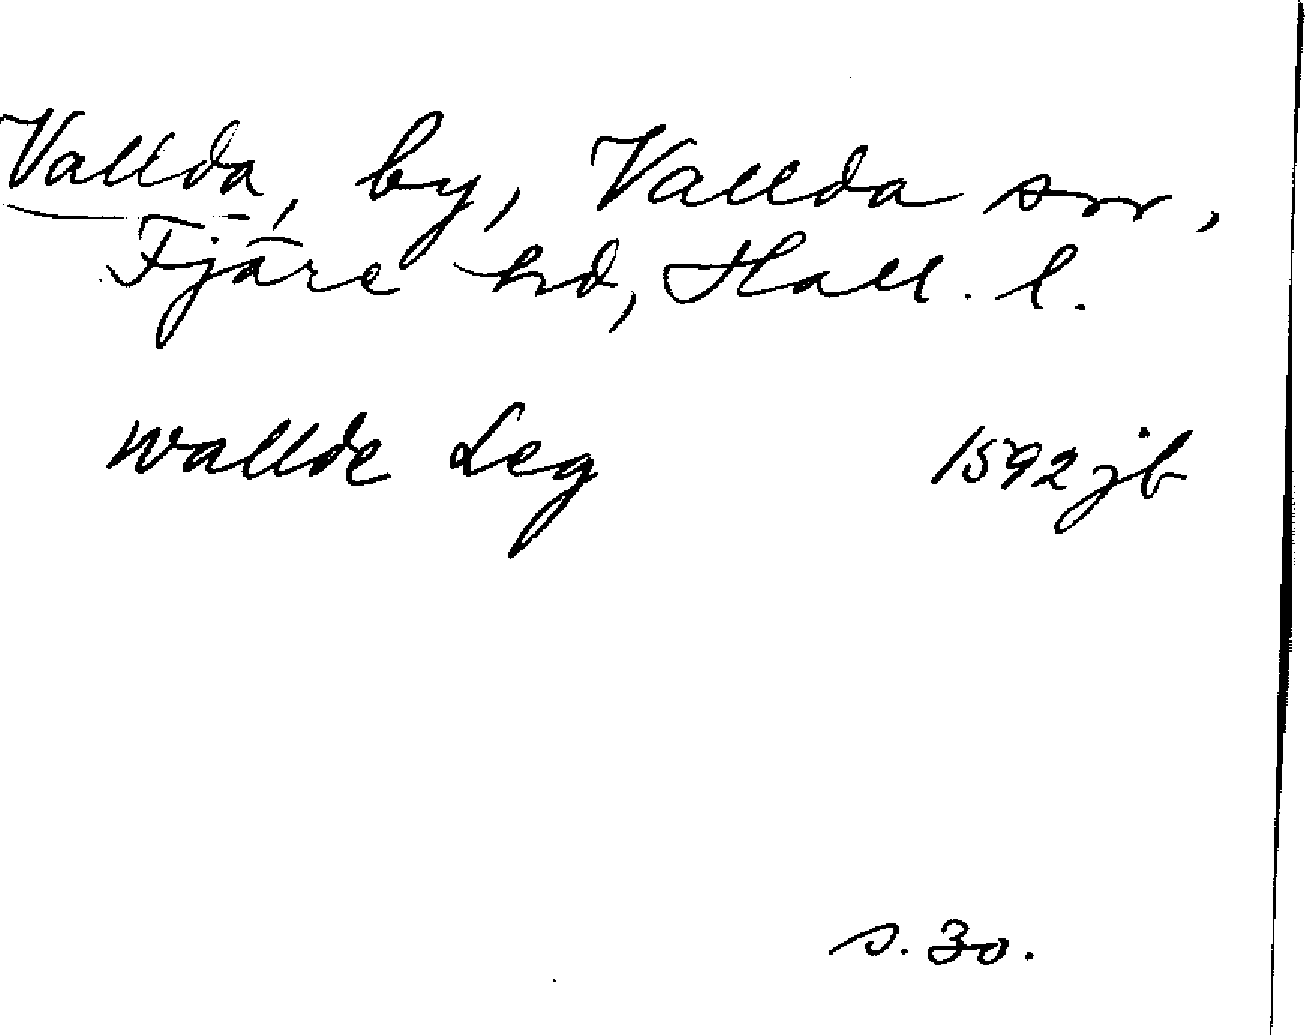 Vallda, by, Vallda snr,
Fjäre hd, Hall. l.
Wallde Leg 1592 jb
s. 30.